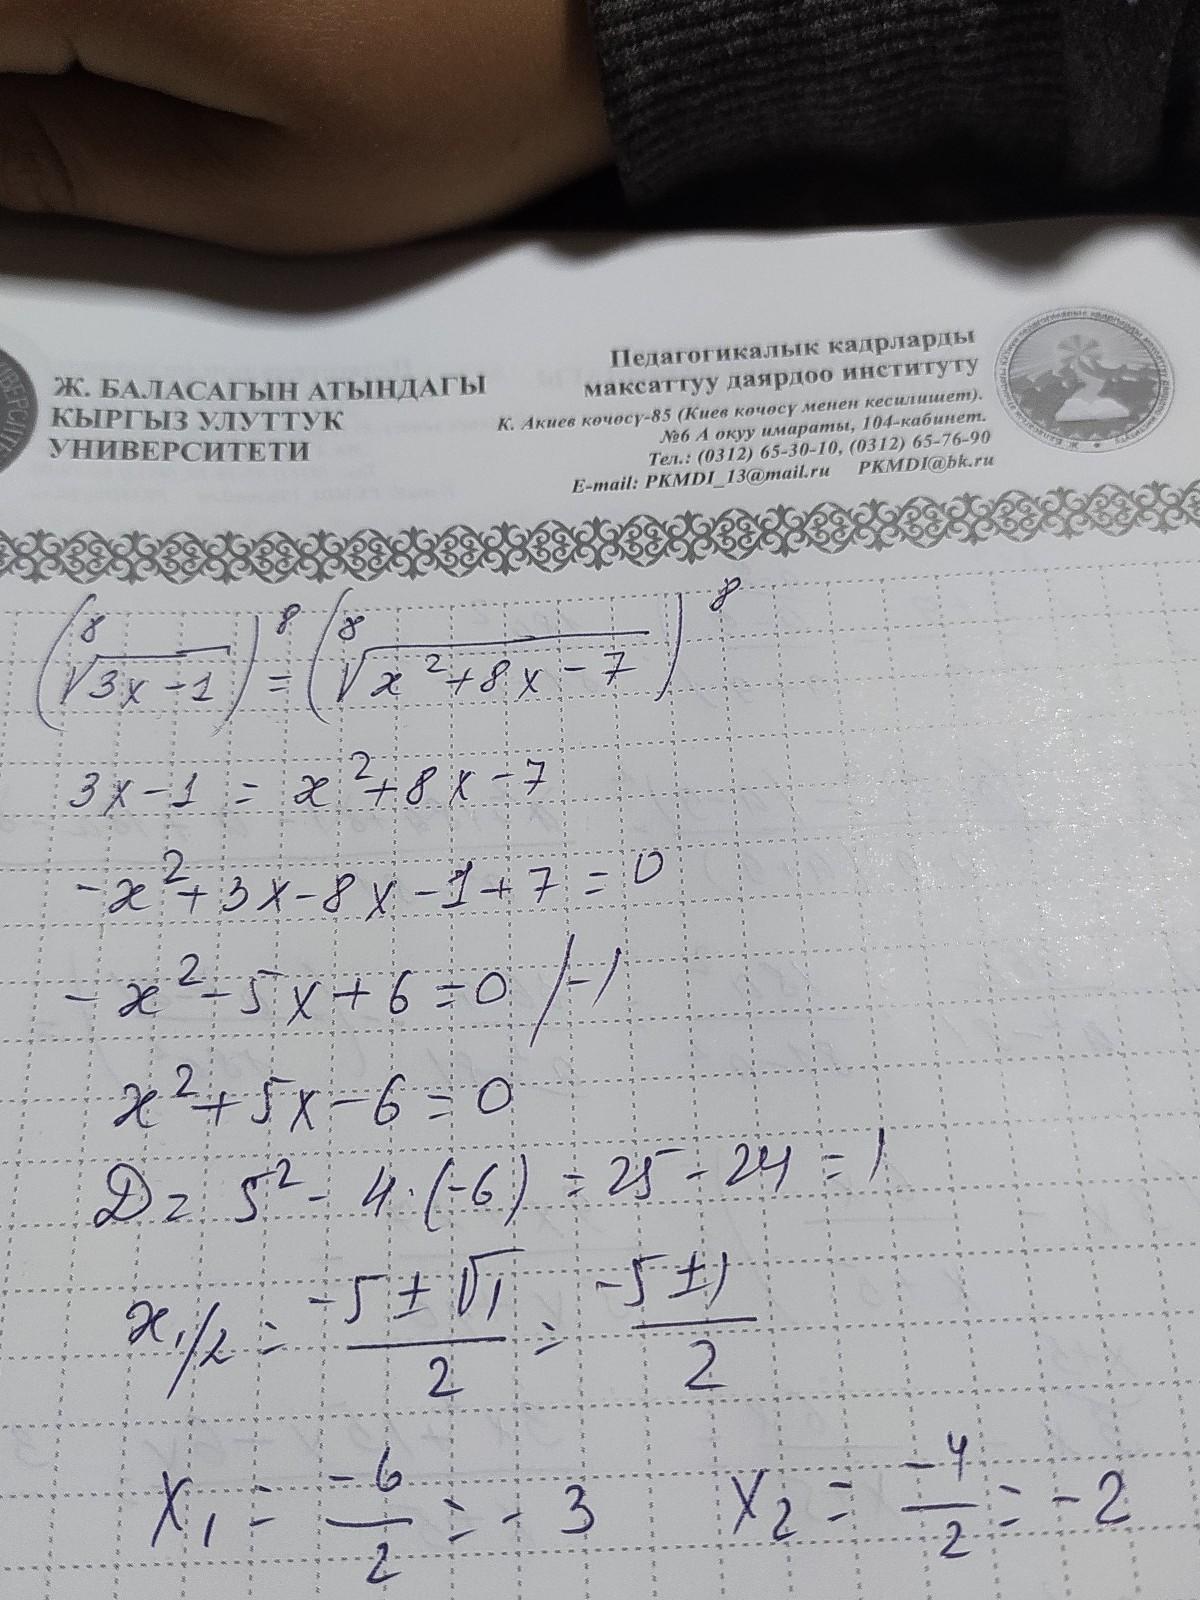 Ж. БАЛАСАГЫН АТЫНДАГЫ
КЫРГЫЗ УЛУТТУК
УНИВЕРСИТЕТИ
Педагогикалык кадрларды
максаттуу даярдоо институту
К. Акиев көчөсү-85 (Киев көчөсү менен кесилишет).
№6 А окуу имараты, 104-кабинет.
Тел.: (0312) 65-30-10, (0312) 65-76-90
E-mail: PKMDI_13@mail.ru PKMDI@bk.ru
(⁸√(3x-1))⁸ = (⁸√(x²+8x-7))⁸
3x-1 = x²+8x-7
-x²+3x-8x-1+7=0
-x²-5x+6=0 /-1
x²+5x-6=0
D= 5²-4·(-6)=25-24=1
x₁/₂ = (-5±√1)/2 = (-5±1)/2
x₁ = -6/2 = -3 x₂ = -4/2 = -2